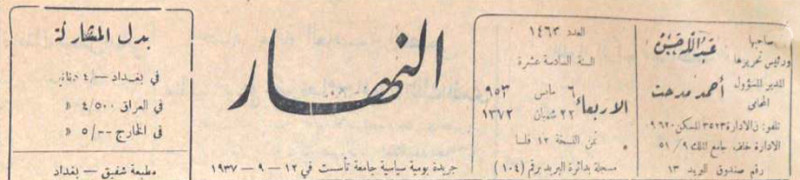 صاحبها
ورئيس تحريرها
عبد الله حسن
المدير المسؤول
المحامي
أحمد مدحت
تلفون: الادارة ٣٥٢٣ المسكن ٩٦٢٠
الادارة خلف جامع الملك ٥١/٩
رقم صندوق البريد ١٣
العدد ١٤٦٣
السنة السادسة عشرة
الاربعاء
٦ مايس ٩٥٣
٢٢ شعبان ١٣٧٢
ثمن النسخة ١٢ فلسا
مسجلة بدائرة البريد برقم (١٠٤)
النهار
جريدة يومية سياسية جامعة تأسست في ١٢ – ٩ – ١٩٣٧
بدل المشاركة
في بغداد – ٤/
في العراق ٤/٥٠٠ «
في الخارج ٥/-- «
مطبعة شفيق – بغداد